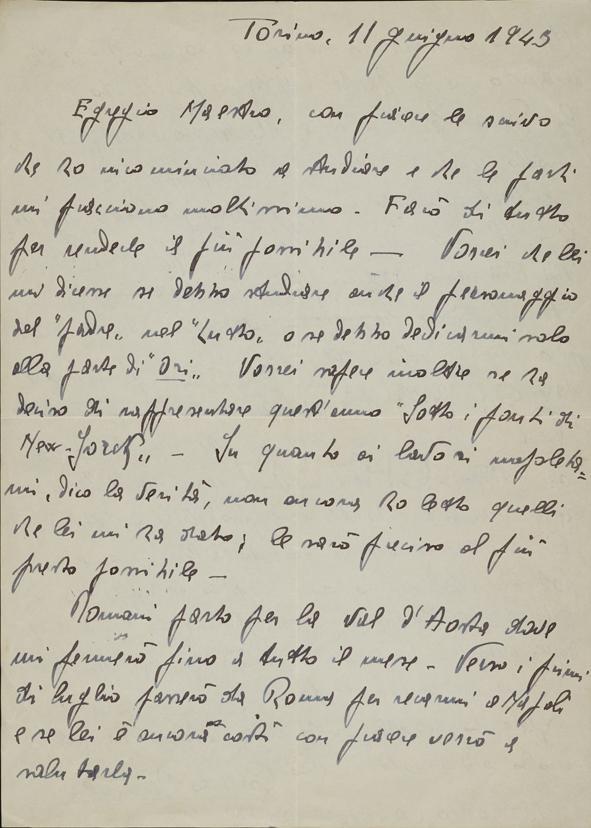 Torino, 11 giugno 1943
Egregio Maestro, con piacere le scrivo
che ho ricominciato a studiare e che le parti
mi piacciono moltissimo. Farò di tutto
per renderle il più possibile — Vorrei che lei
mi dicesse se debbo studiare anche il personaggio
del "padre„ nel "Lutto„ o se debbo dedicarmi solo
alla parte di "Ori„ Vorrei sapere inoltre se ha
deciso di rappresentare quest'anno "Sotto i ponti di
New-Jorck„ — In quanto ai lavori napoleta=
ni, dico la verità, non ancora ho letto quelli
che lei mi ha dato; le sarò preciso al più
presto possibile —
Domani parto per la Val d'Aosta dove
mi fermerò fino a tutto il mese — Verso i primi
di luglio passerò da Roma per recarmi a Napoli
e se lei è ancora costì con piacere verrò a
salutarla —